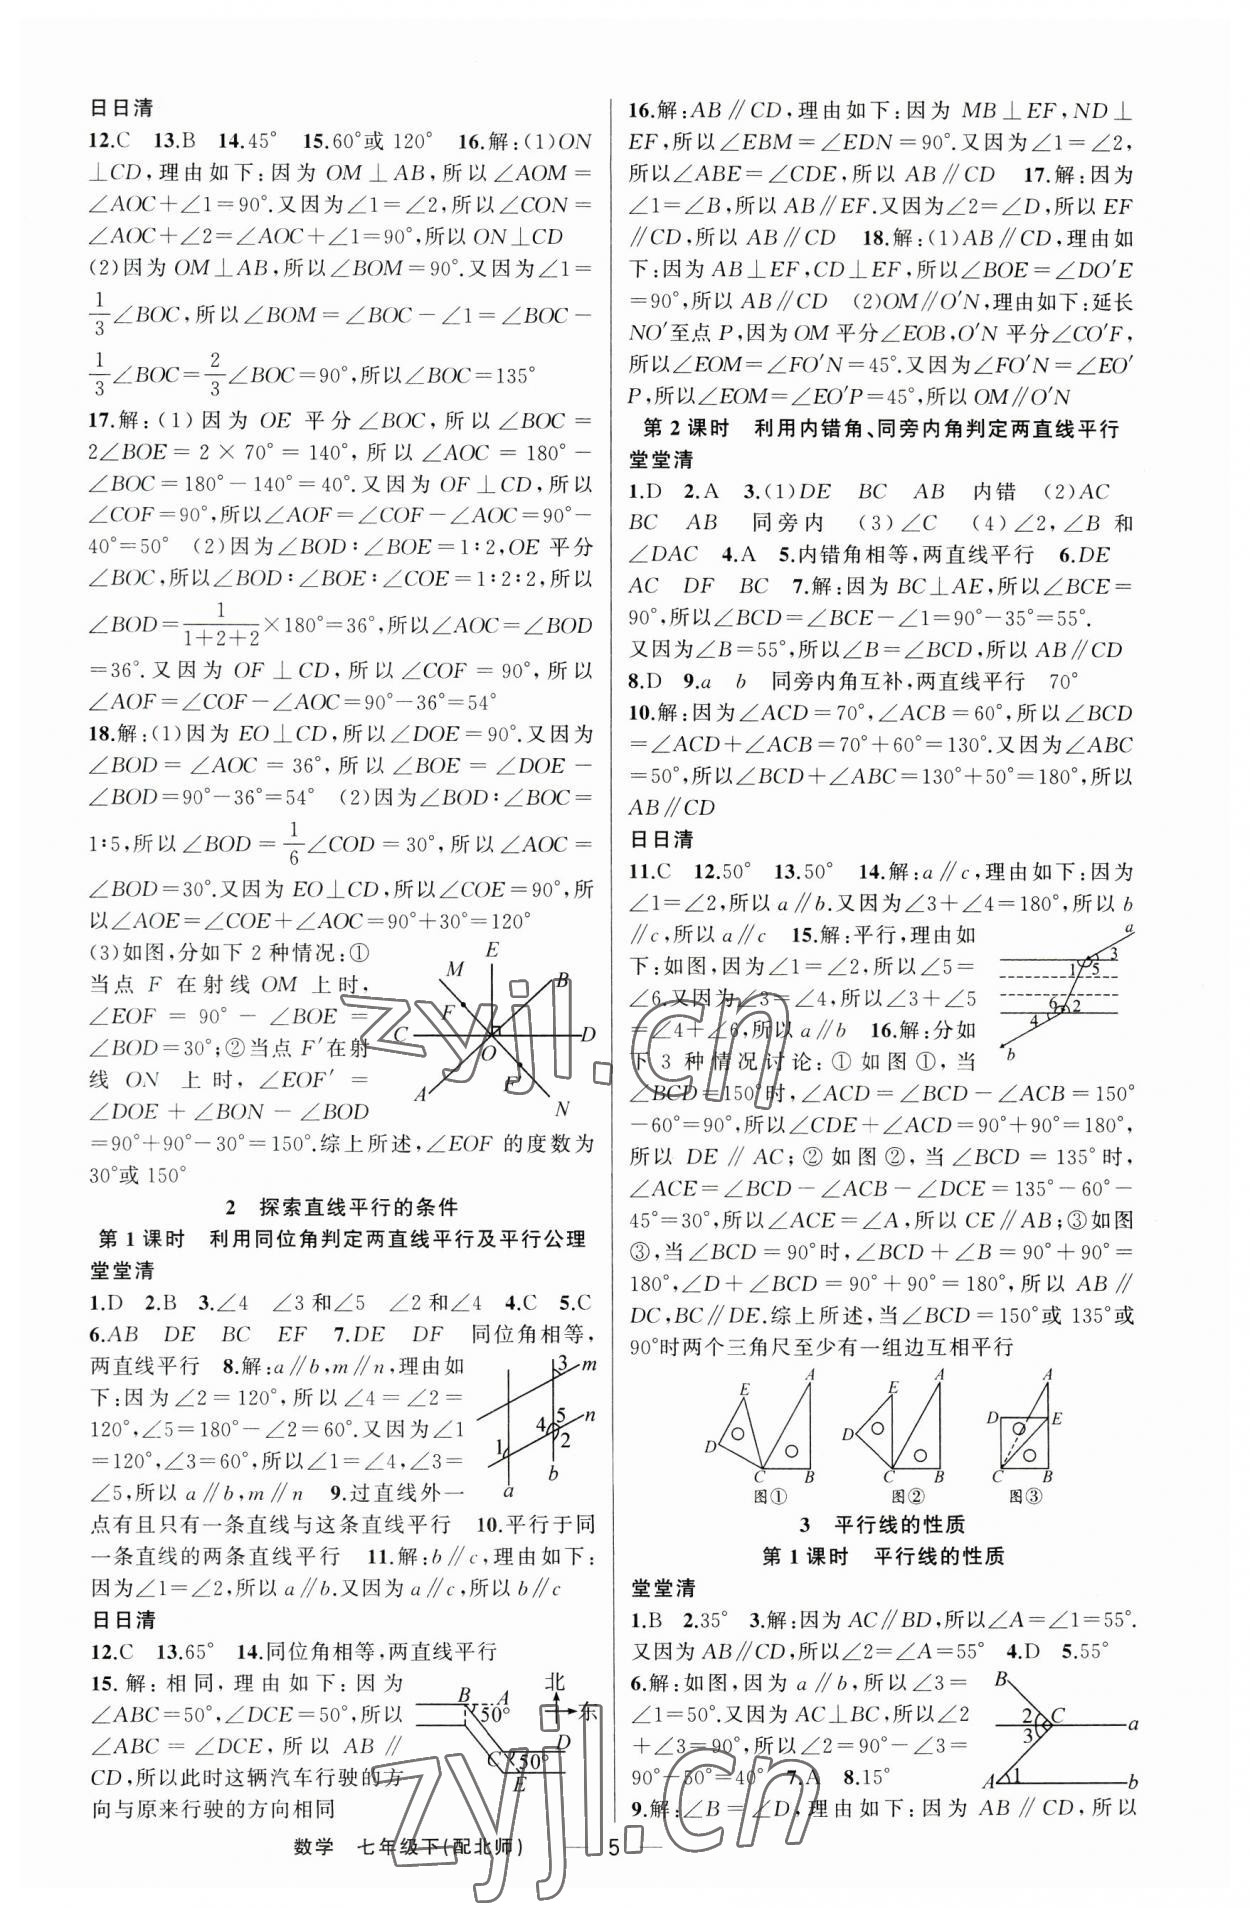 日日清
12.C 13.B 14.45° 15.60°或 120° 16.解:(1)ON
⊥CD,理由如下:因为 OM⊥AB,所以∠AOM=
∠AOC+∠1=90°.又因为∠1=∠2,所以∠CON=
∠AOC+∠2=∠AOC+∠1=90°,所以 ON⊥CD
(2)因为 OM⊥AB,所以∠BOM=90°.又因为∠1=
1/3∠BOC,所以∠BOM=∠BOC-∠1=∠BOC-
1/3∠BOC=2/3∠BOC=90°,所以∠BOC=135°
17.解:(1)因为 OE 平分∠BOC,所以∠BOC=
2∠BOE=2×70°=140°,所以∠AOC=180°-
∠BOC=180°-140°=40°.又因为 OF⊥CD,所以
∠COF=90°,所以∠AOF=∠COF-∠AOC=90°-
40°=50° (2)因为∠BOD∶∠BOE=1∶2,OE 平分
∠BOC,所以∠BOD∶∠BOE∶∠COE=1∶2∶2,所以
∠BOD=1/(1+2+2)×180°=36°,所以∠AOC=∠BOD
=36°.又因为 OF⊥CD,所以∠COF=90°,所以
∠AOF=∠COF-∠AOC=90°-36°=54°
18.解:(1)因为 EO⊥CD,所以∠DOE=90°.又因为
∠BOD=∠AOC=36°,所以∠BOE=∠DOE-
∠BOD=90°-36°=54° (2)因为∠BOD∶∠BOC=
1∶5,所以∠BOD=1/6∠COD=30°,所以∠AOC=
∠BOD=30°.又因为 EO⊥CD,所以∠COE=90°,所
以∠AOE=∠COE+∠AOC=90°+30°=120°
(3)如图,分如下 2 种情况:①
当点 F 在射线 OM 上时,
∠EOF=90°-∠BOE=
∠BOD=30°;②当点 F′在射
线 ON 上时,∠EOF′=
∠DOE+∠BON-∠BOD
=90°+90°-30°=150°.综上所述,∠EOF 的度数为
30°或 150°
E
M
B
F
C
D
O
A
F′
N
2 探索直线平行的条件
第 1 课时 利用同位角判定两直线平行及平行公理
堂堂清
1.D 2.B 3.∠4 ∠3 和∠5 ∠2 和∠4 4.C 5.C
6.AB DE BC EF 7.DE DF 同位角相等,
两直线平行 8.解:a∥b,m∥n,理由如
下:因为∠2=120°,所以∠4=∠2=
120°,∠5=180°-∠2=60°.又因为∠1
=120°,∠3=60°,所以∠1=∠4,∠3=
∠5,所以 a∥b,m∥n 9.过直线外一
点有且只有一条直线与这条直线平行 10.平行于同
一条直线的两条直线平行 11.解:b∥c,理由如下:
因为∠1=∠2,所以 a∥b.又因为 a∥c,所以 b∥c
3 m
5 n
4
2
1
b
a
日日清
12.C 13.65° 14.同位角相等,两直线平行
15.解:相同,理由如下:因为
∠ABC=50°,∠DCE=50°,所以
∠ABC=∠DCE,所以 AB∥
CD,所以此时这辆汽车行驶的方
向与原来行驶的方向相同
北
东
B
A
50°
D
C
50°
E
16.解:AB∥CD,理由如下:因为 MB⊥EF,ND⊥
EF,所以∠EBM=∠EDN=90°.又因为∠1=∠2,
所以∠ABE=∠CDE,所以 AB∥CD 17.解:因为
∠1=∠B,所以 AB∥EF.又因为∠2=∠D,所以 EF
∥CD,所以 AB∥CD 18.解:(1)AB∥CD,理由如
下:因为 AB⊥EF,CD⊥EF,所以∠BOE=∠DO′E
=90°,所以 AB∥CD (2)OM∥O′N,理由如下:延长
NO′至点 P,因为 OM 平分∠EOB,O′N 平分∠CO′F,
所以∠EOM=∠FO′N=45°.又因为∠FO′N=∠EO′
P,所以∠EOM=∠EO′P=45°,所以 OM∥O′N
第 2 课时 利用内错角、同旁内角判定两直线平行
堂堂清
1.D 2.A 3.(1)DE BC AB 内错 (2)AC
BC AB 同旁内 (3)∠C (4)∠2,∠B 和
∠DAC 4.A 5.内错角相等,两直线平行 6.DE
AC DF BC 7.解:因为 BC⊥AE,所以∠BCE=
90°,所以∠BCD=∠BCE-∠1=90°-35°=55°.
又因为∠B=55°,所以∠B=∠BCD,所以 AB∥CD
8.D 9.a b 同旁内角互补,两直线平行 70°
10.解:因为∠ACD=70°,∠ACB=60°,所以∠BCD
=∠ACD+∠ACB=70°+60°=130°.又因为∠ABC
=50°,所以∠BCD+∠ABC=130°+50°=180°,所以
AB∥CD
日日清
11.C 12.50° 13.50° 14.解:a∥c,理由如下:因为
∠1=∠2,所以 a∥b.又因为∠3+∠4=180°,所以 b
∥c,所以 a∥c 15.解:平行,理由如
下:如图,因为∠1=∠2,所以∠5=
∠6.又因为∠3=∠4,所以∠3+∠5
=∠4+∠6,所以 a∥b 16.解:分如
下 3 种情况讨论:①如图①,当
∠BCD=150°时,∠ACD=∠BCD-∠ACB=150°
-60°=90°,所以∠CDE+∠ACD=90°+90°=180°,
所以 DE∥AC;②如图②,当∠BCD=135°时,
∠ACE=∠BCD-∠ACB-∠DCE=135°-60°-
45°=30°,所以∠ACE=∠A,所以 CE∥AB;③如图
③,当∠BCD=90°时,∠BCD+∠B=90°+90°=
180°,∠D+∠BCD=90°+90°=180°,所以 AB∥
DC,BC∥DE.综上所述,当∠BCD=150°或 135°或
90°时两个三角尺至少有一组边互相平行
a
3
1 5
6 2
4
b
A
E
D
C B
图①
A
E
D
C B
图②
A
D E
C B
图③
3 平行线的性质
第 1 课时 平行线的性质
堂堂清
1.B 2.35° 3.解:因为 AC∥BD,所以∠A=∠1=55°.
又因为 AB∥CD,所以∠2=∠A=55° 4.D 5.55°
6.解:如图,因为 a∥b,所以∠3=
∠1=50°.又因为 AC⊥BC,所以∠2
+∠3=90°,所以∠2=90°-∠3=
90°-50°=40° 7.A 8.15°
9.解:∠B=∠D,理由如下:因为 AB∥CD,所以
B
2 C
3
a
A 1
b
数学 七年级下(配北师)
5
zyjl.cn
zyjl.cn